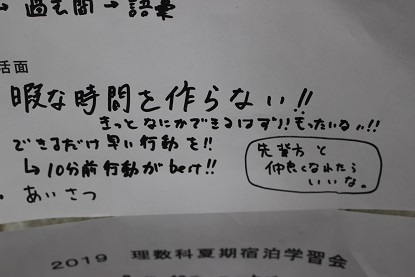 → 過去問 → 語彙
活面
暇な時間を作らない!!
きっとなにかできるはず!もったいない!!
できるだけ早い行動を!!
↳10分前行動がbest!!
先輩方と
仲良くなれたら
いいな。
・あいさつ
2019 理数科夏期宿泊学習会